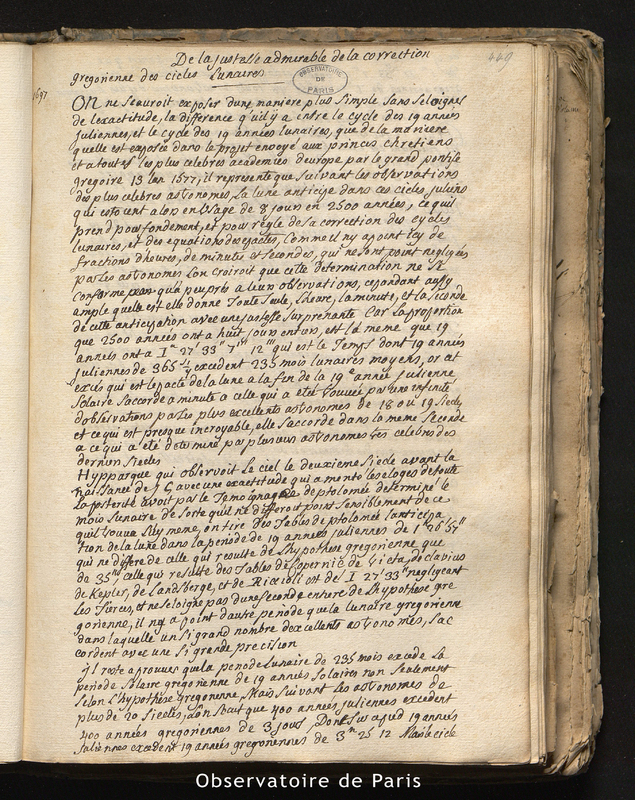 De la justesse admirable de la correction
gregorienne des cicles Lunaires
449
OBSERVATOIRE DE PARIS
1697
ON ne scauroit exposer dune maniere plus simple sans seloigner
de lexactitude, la difference quil y a entre le cycle des 19 années
Juliennes, et le cycle des 19 années lunaires, que de la maniere
quelle est exposée dans le projet envoyé aux princes chretiens
et a toutes les plus celebres academies deurope par le grand pontife
gregoire 13 lan 1577, il represente que suivant les observations
des plus celebres astronomes, la lune anticipe dans ces cicles juliens
qui estoient alors en usage de 8 jours en 2500 années, ce quil
prend pour fondement, et pour régle de sa correction des cycles
lunaires, et des equations des epactes, Comme il ny a point icy de
fractions dheures, de minutes et secondes, qui ne sont point negligées
par les astronomes Lon croiroit que cette determination ne se
conforme quà peu près a leur observations, cependant aussy
ample quelle est elle donne toute seule, lheure, la minute, et la seconde
de cette anticipation avec une justesse surprenante Car la proportion
que 2500 années ont a huit jours entiers, est la meme que 19
années ont a 1h 27' 33" 7''' 12'''' qui est le temps dont 19 années
juliennes de 365 jrs 1/4 excedent 235 mois lunaires moyens, or cet
excés qui est lepacte de la lune a la fin de la 19e année Julienne
solaire saccorde a minute a celle qui a eté trouvée par une infinité
dobservations par les plus excellents astronomes de 18 ou 19 siecles
et ce qui est presque incroyable, elle saccorde dans la meme seconde
a ce qui a eté determiné par plusieurs astronomes les celebres des
derniers siecles
Hypparque qui observoit le ciel le deuxieme siecle avant la
naissance de J C avec une exactitude qui a merité les eloges de toute
la posterité avoit par le temoignage de ptolomée determiné le
mois lunaire de sorte quil ne differoit point sensiblement de ce
quil trouva luy meme, on tire des Tables de ptolomée lanticipa
tion de la lune dans la periode de 19 années juliennes de 1h 26' 57"
qui ne differe de celle qui resulte de lhypothese gregorienne que
de 35" celle qui resulte des Tables de Copernic de Vieta, de clavius
de Kepler, de Landsberge, et de Riccioli est de 1 27' 33" negligeant
les tierces, et ne seloigne pas dune seconde entiere de lhypothese gre
gorienne, il ny a point dautre periode que la lunaire gregorienne
dans laquelle un si grand nombre dexcellents astronomes, sac
cordent avec une si grande precision
Il reste a prouver que la periode lunaire de 235 mois excede la
periode solaire gregorienne de 19 années solaires non seulement
selon lhypothése gregorienne, Mais suivant les astronomes de
plus de 20 siecles, Lon scait que 400 années juliennes excedent
400 années gregoriennes de 3 jours, Donc 19 années
Juliennes excedent 19 années gregoriennes de 3h 25 12 Mais le cicle
Observatoire de Paris